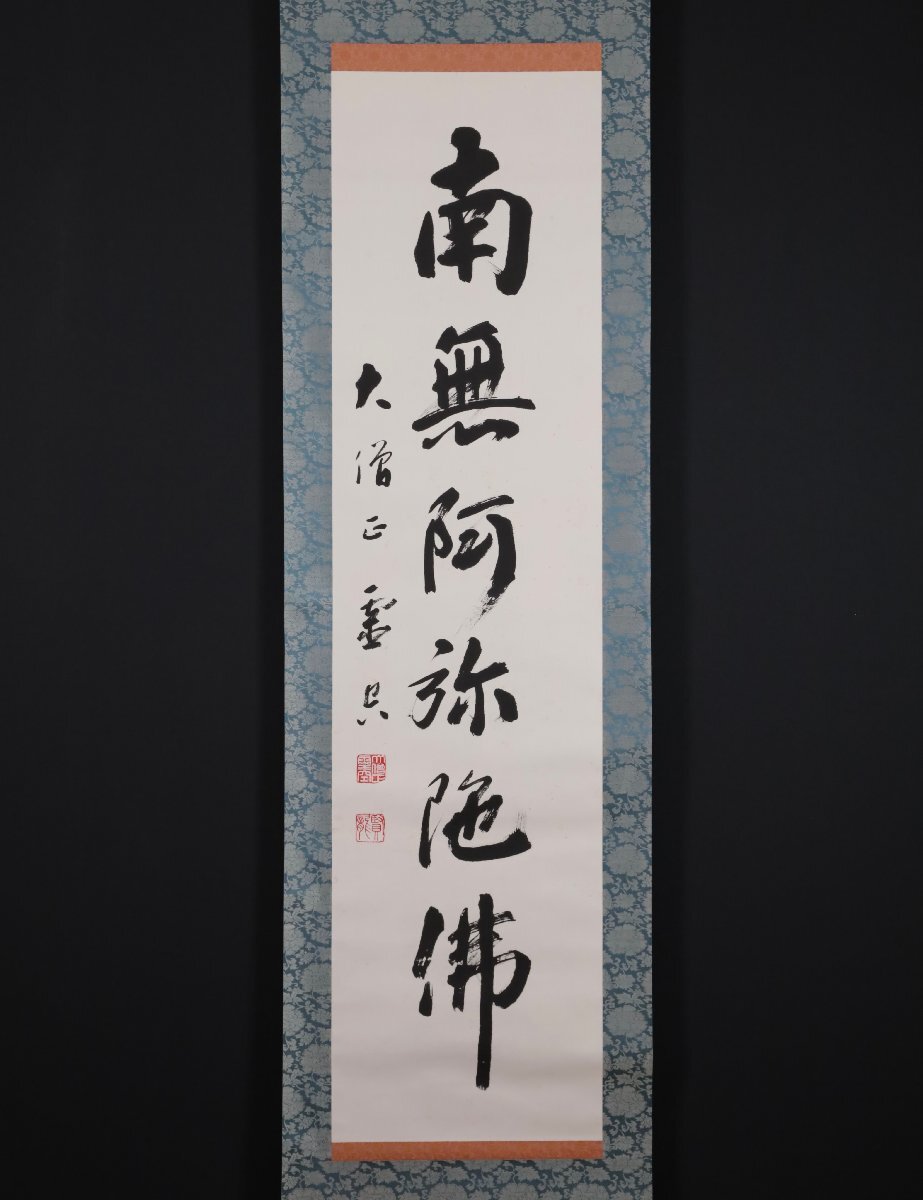 南無阿弥陀佛
大僧正